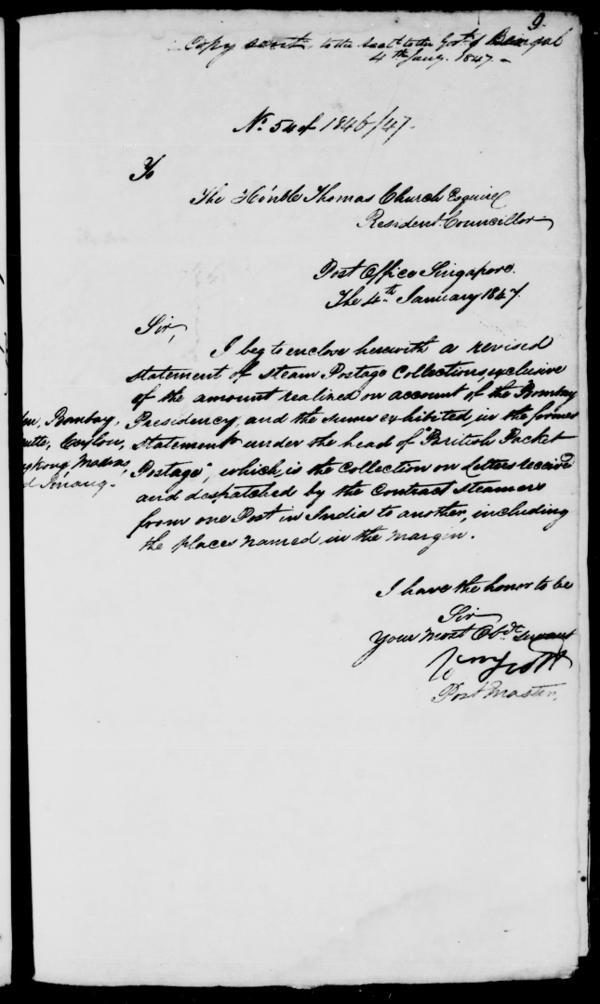 9.
Copy sent to the Secty. to the Govt. of Bengal
4th Jany. 1847.-
No. 54 of 1846/47.
To
The Honble Thomas Church Esquire
Resident Councillor
Post Office Singapore.
The 4th January 1847.
Sir,
I beg to enclose herewith a revised
statement of Steam Postage Collections exclusive
of the amount realized on account of the Bombay
Presidency, and the sums exhibited in the former
statement under the head of "British Packet
Postage", which is the Collection on Letters received
and despatched by the Contract Steamers
from one Port in India to another, including
the places named in the margin.
Bombay,
Ceylon,
Madras,
Pinang.
I have the honor to be
Sir
Your most Obdt. Servant
Wm Scott
Post Master.